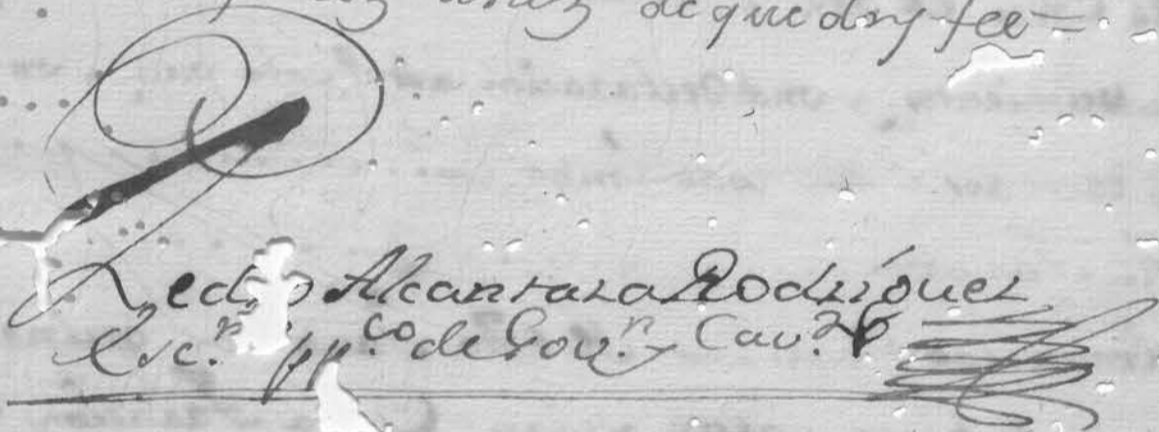 de que doy fee =
Pedro Alcantara Rodríguez
Esc.n pp.co de Gov.n y Cav.do